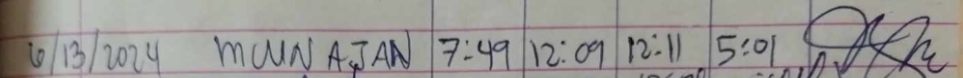 6/13/2024 MUUN AJAN 7:49 12:09 12:11 5:01